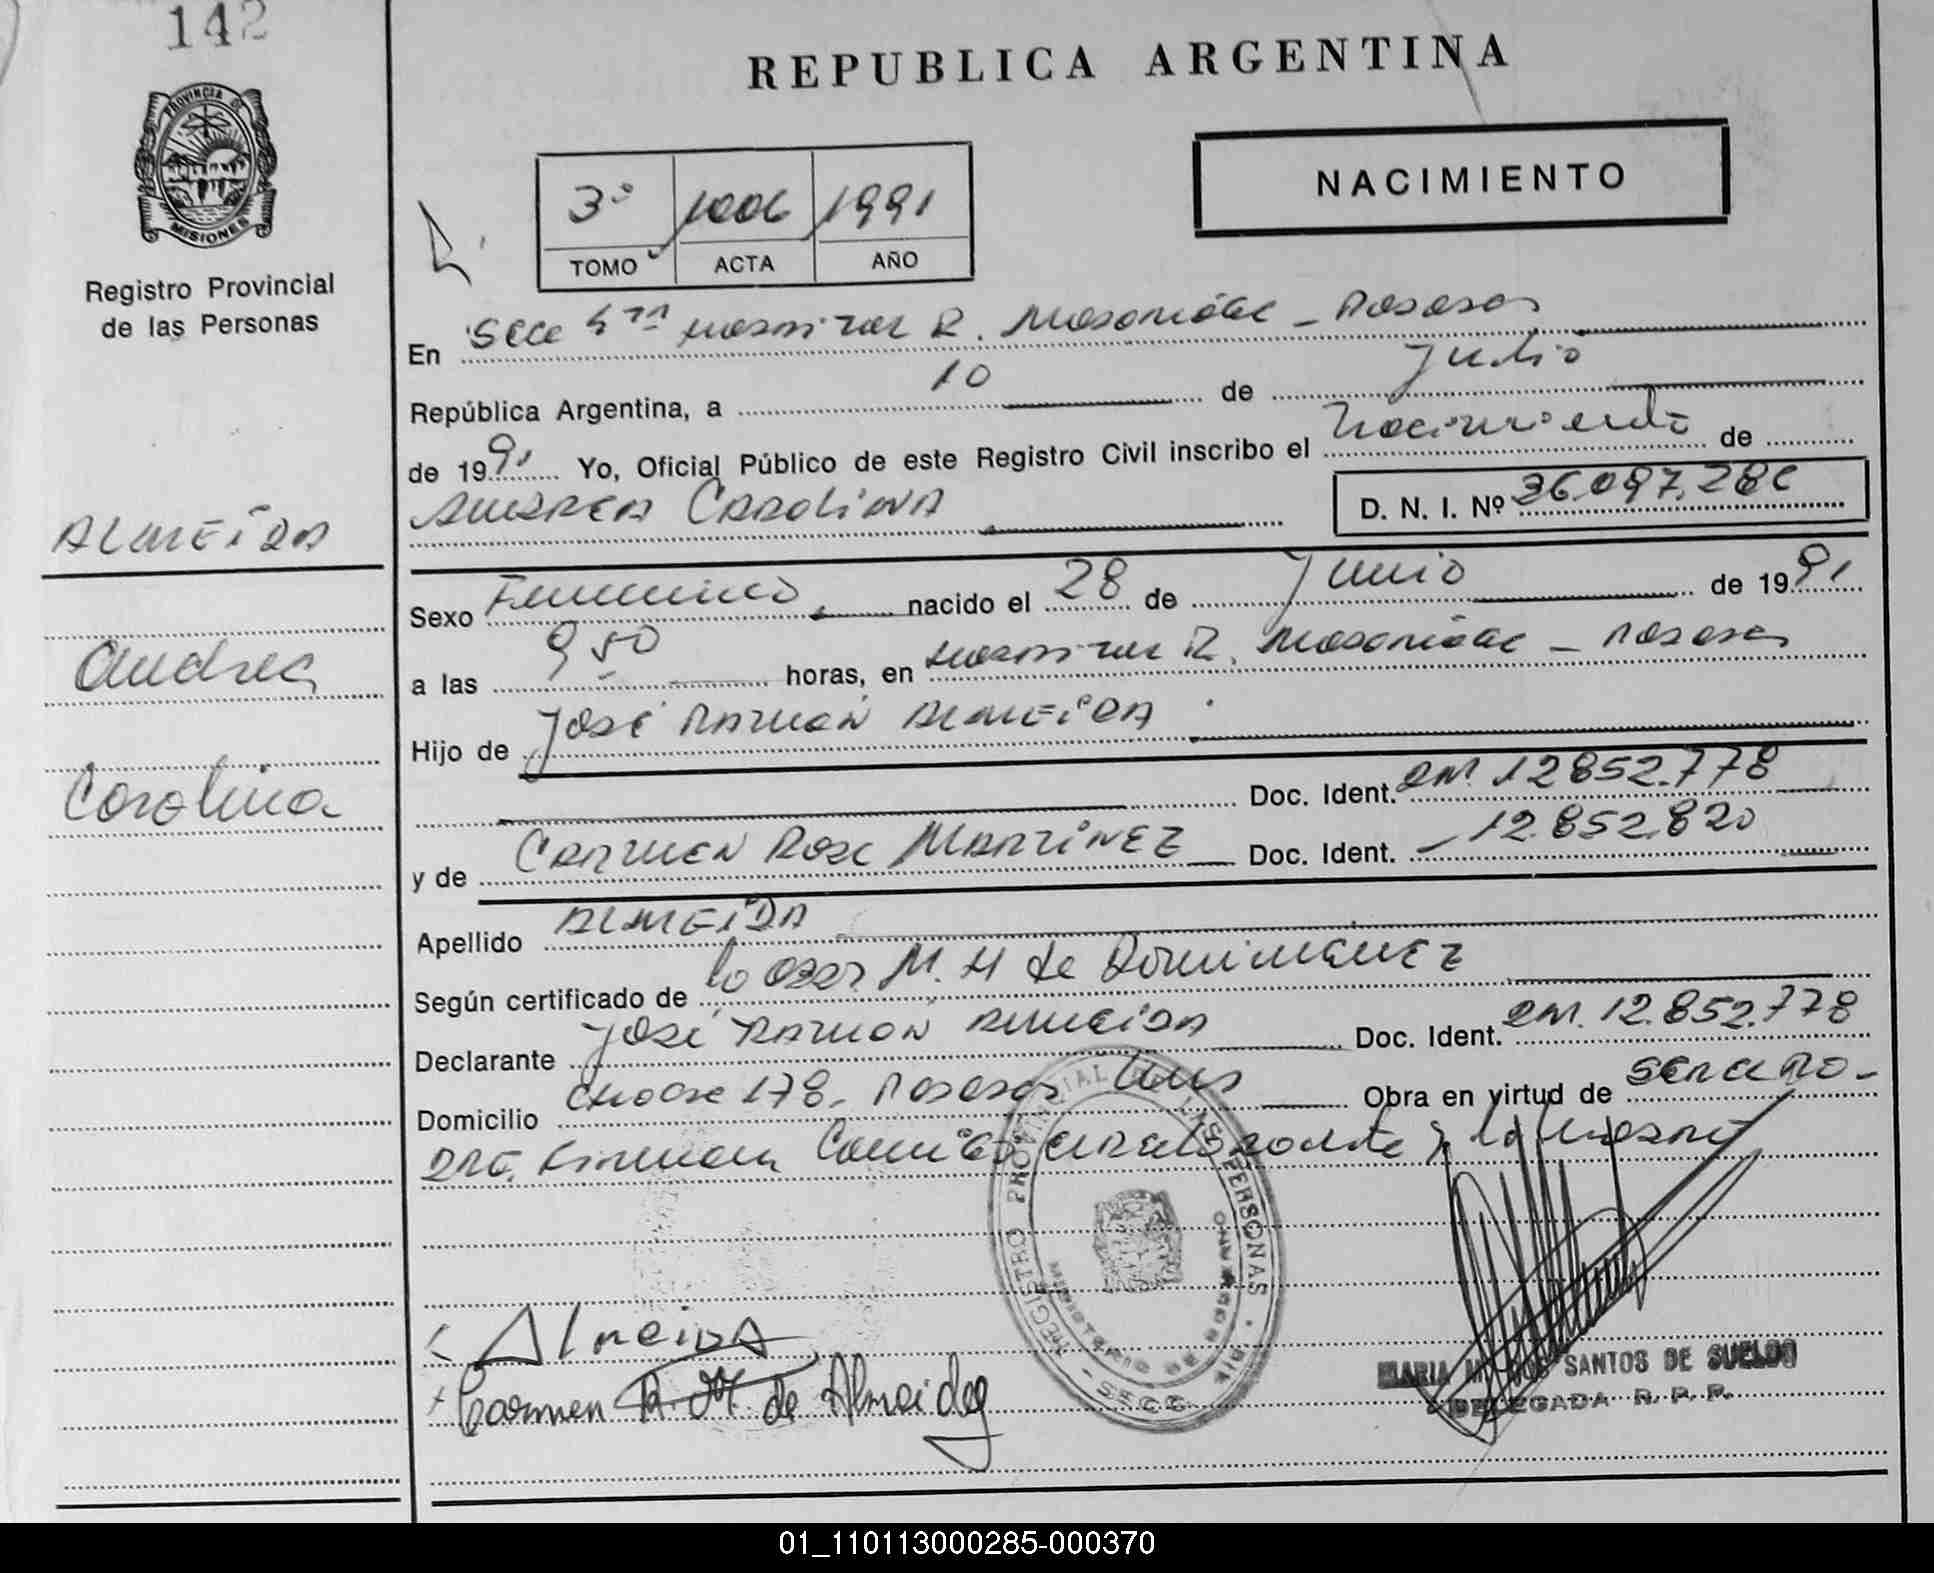 142
REPUBLICA ARGENTINA
PROVINCIA DE
MISIONES
Registro Provincial
de las Personas
NACIMIENTO
3º 1006 1991
TOMO ACTA AÑO
En Secc 5ta Hospital R. Madariaga - Posadas
República Argentina, a 10 de Julio
de 1991 Yo, Oficial Público de este Registro Civil inscribo el Nacimiento de
ANDREA CAROLINA D. N. I. Nº 36.097.28
ALMEIDA
Andrea
Carolina
Sexo Femenino nacido el 28 de Junio de 1991
a las 9,50 horas, en Hospital R. Madariaga - Posadas
Hijo de JOSÉ RAMON ALMEIDA
Doc. Ident. DNI. 12.852.778
y de CARMEN ROSA MARTINEZ Doc. Ident. 12.852.820
Apellido ALMEIDA
Según certificado de la M. H de DOMINGUEZ
Declarante JOSÉ RAMÓN ALMEIDA Doc. Ident. DNI. 12.852.778
Domicilio 178. Posadas Obra en virtud de
y la
REGISTRO PROVINCIAL DE LAS PERSONAS
MINISTERIO DE GOBIERNO
SECC
Almeida
Carmen R. M. de Almeida
MARIA M. DOS SANTOS DE SUELDO
DELEGADA R. P. P.
01_110113000285-000370